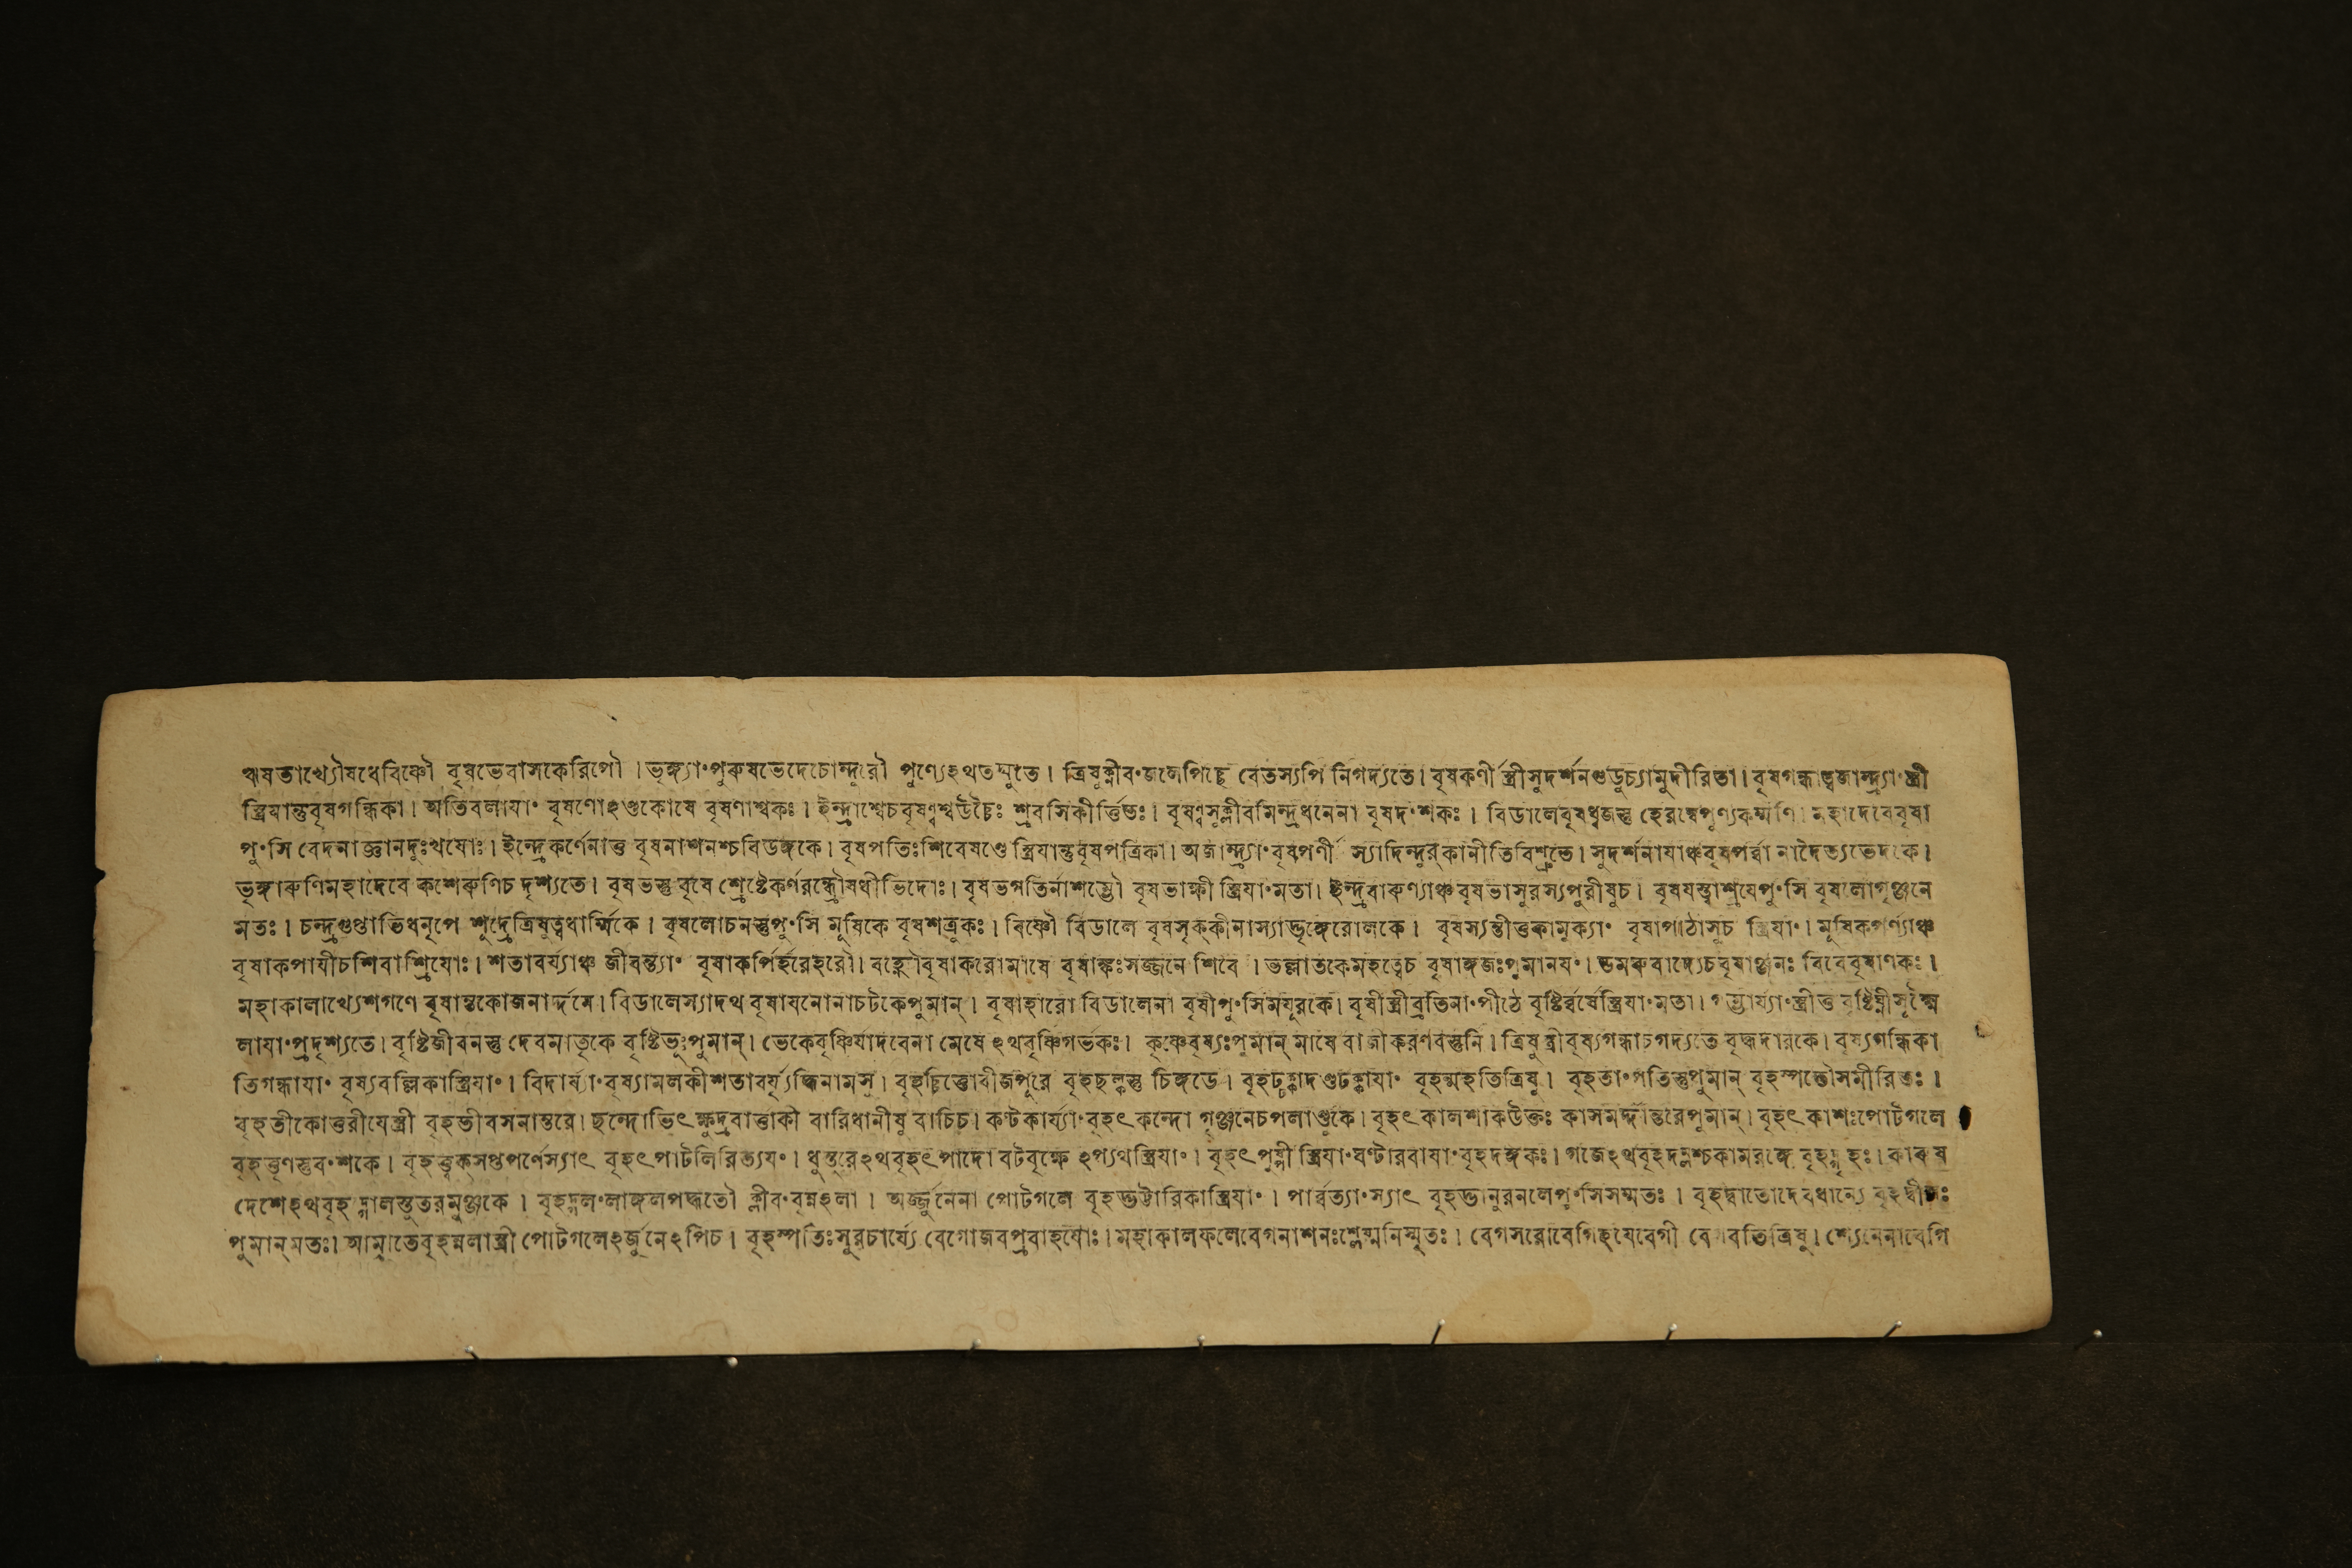 ঞ্চষভাখ্যৌষধেবিষ্ণৌ বৃষভেবাসকেরিপৌ । ভৃঙ্গ্যাং পুরুষভেদেচোন্দুরৌ পুণ্যেঽথতম্মুতে । ত্রিষুক্লীবং পিচ্ছে বেতস্যপি নিগদ্যতে । বৃষকর্ণী স্ত্রীসুদর্শনগুডুচ্যামুদীরিতা । বৃষগন্ধাত্বজান্ত্র্যাং স্ত্রী
স্ত্রিযান্তুবৃষগন্ধিকা । অতিবলাযাং বৃষণোঽণ্ডকোষে বৃষণাশ্বকঃ । ইন্দ্রাশ্বেচবৃষণ্বশ্বউচ্চৈঃ শ্রবসিকীর্ত্তিতঃ । বৃষণ্বসূক্লীবমিন্দ্রধনেনা বৃষদংশকঃ । বিডালেবৃষধ্বজস্তু হেরম্বেপুণ্যকর্ম্মণি । মহাদেবেবৃষা
পুংসি বেদনাজ্ঞানদুঃখযোঃ । ইন্দ্রেকর্ণেনাত্তু বৃষনাশনশ্চবিডঙ্গকে । বৃষপতিঃশিবেষণ্ডে স্ত্রিযান্তুবৃষপত্রিকা । অজান্ত্র্যাং বৃষপর্ণী স্যাদিন্দুরকানীতিবিশ্রুতে । সুদর্শনাযাঞ্চবৃষপর্ব্বা নাদৈত্যভেদকে ।
ভৃঙ্গারুণিমহাদেবে কশেরুণিচ দৃশ্যতে । বৃষভস্তু বৃষে শ্রেষ্টেকর্ণরন্ধ্রৌষধীভিদোঃ । বৃষভগতির্নাশম্ভৌ বৃষভাক্ষী স্ত্রিযাং মতা । ইন্দ্রবারুণ্যাঞ্চবৃষভাসুরস্যপুরীষুচ । বৃষযস্ত্বাশ্রযেপুংসি বৃষলোগৃঞ্জনে
মতঃ । চন্দ্রগুপ্তাভিধনৃপে শূদ্রেত্রিষুত্বধার্ম্মিকে । বৃষলোচনস্তুপুংসি মূষিকে বৃষশত্রুকঃ । বিষ্ণৌ বিডালে বৃষসৃক্কীনাস্যাদ্ভৃঙ্গেরোলকে । বৃষস্যন্তীত্তুকামুক্যাং বৃষাপাঠাসুচ স্ত্রিযাং । মূষিকপর্ণ্যাঞ্চ
বৃষাকপাযীচশিবাশ্রিযোঃ । শতাবর্য্যাঞ্চ জীবন্ত্যাং বৃষাকপির্হরেহরৌ । বহ্নৌবৃষাকরোমাষে বৃষাঙ্কঃসজ্জনে শিবে । ভল্লাতকেমহত্ত্বেচ বৃষাঙ্গজঃপুমানযং । ডমরুবাদ্যেচবৃষাঞ্জনঃ বৃষাণকঃ ।
মহাকালাখ্যেশগণে বৃষান্তকোজনার্দ্দনে । বিডালেস্যাদথ বৃষাযনোনাচটকেপুমান্ । বৃষাহারো বিডালেনা বৃষীপুংসিমযূরকে । বৃষীস্ত্রীব্রতিনাং পীঠে বৃষ্টির্ব্বর্ষেস্ত্রিযাং মতা । স্ত্রীত্তু বৃষ্টিঘ্নীসূক্ষ্মৈ
লাযাং প্রদৃশ্যতে । বৃষ্টিজীবনস্তু দেবমাতৃকে বৃষ্টিভূঃপুমান্ । ভেকেবৃষ্ণির্যাদবেনা মেষে ঽথবৃষ্ণিগর্ভকঃ । কৃষ্ণেবৃষ্যঃপুমান্ মাষে বাজীকরণবস্তুনি । ত্রিষু স্ত্রীবৃষ্যগন্ধাচগদ্যতে বৃদ্ধদারকে । বৃষ্যগন্ধিকা
তিগন্ধাযাং বৃষ্যবল্লিকাস্ত্রিযাং । বিদার্য্যাং বৃষ্যামলকীশতাবর্য্যৃদ্ধিনামসু । বৃহচ্চিত্তোবীজপূরে বৃহছল্কস্তু চিঙ্গডে । বৃহঢ্ঢক্কাদণ্ডঢক্কাযাং বৃহন্মহতিত্রিষু । বৃহতাং পতিস্তুপুমান্ বৃহস্পতৌসমীরিতঃ ।
বৃহতীকোত্তরীযেস্ত্রী বৃহতীবসনান্তরে । ছন্দোভিৎক্ষুদ্রবার্ত্তাকী বারিধানীষু বাচিচ । কণ্টকার্য্যাং বৃহৎ কন্দো গৃঞ্জনেচপলাণ্ডুকে । বৃহৎ কালশাকউক্তঃ কাসমর্দ্দান্তরেপুমান্ । বৃহৎ কাশঃপোটগলে
বৃহত্তৃণস্তুবংশকে । বৃহত্ত্বক্সপ্তপর্ণেস্যাৎ বৃহৎপাটলিরিত্যযং । ধুস্তূরেঽথবৃহৎপাদো বটবৃক্ষে ঽপ্যথস্ত্রিযাং । বৃহৎপুষ্পী স্ত্রিযাং ঘণ্টারবাযাং বৃহদঙ্গকঃ । গজেঽথবৃহদম্লশ্চকামরঙ্গে বৃহদ্গৃহঃ । কারুষ
দেশেঽথবৃহন্নালস্তুতরমুঞ্জকে । বৃহদ্দলং লাঙ্গলপদ্ধতৌ ক্লীবং বৃহন্নলা । অর্জ্জুনেনা পোটগলে বৃহদ্ভট্টারিকাস্ত্রিযাং । পার্ব্বত্যাং স্যাৎ বৃহদ্ভানুরনলেপুংসিসম্মতঃ । বৃহদ্বাতোদেবধান্যে বৃহদ্বীজঃ
পুমান্মতঃ । আম্রাতেবৃহন্নলাস্ত্রী পোটগলেঽর্জুনেঽপিচ । বৃহস্পতিঃসুরচার্য্যে বেগোজবপ্রবাহযোঃ । মহাকালফলেবেগনাশনঃশ্লেষ্মনিস্মৃতঃ । বেগসরোবেগিহযেবেগী বেগবতিত্রিষু । শ্যেনেনাবেগি